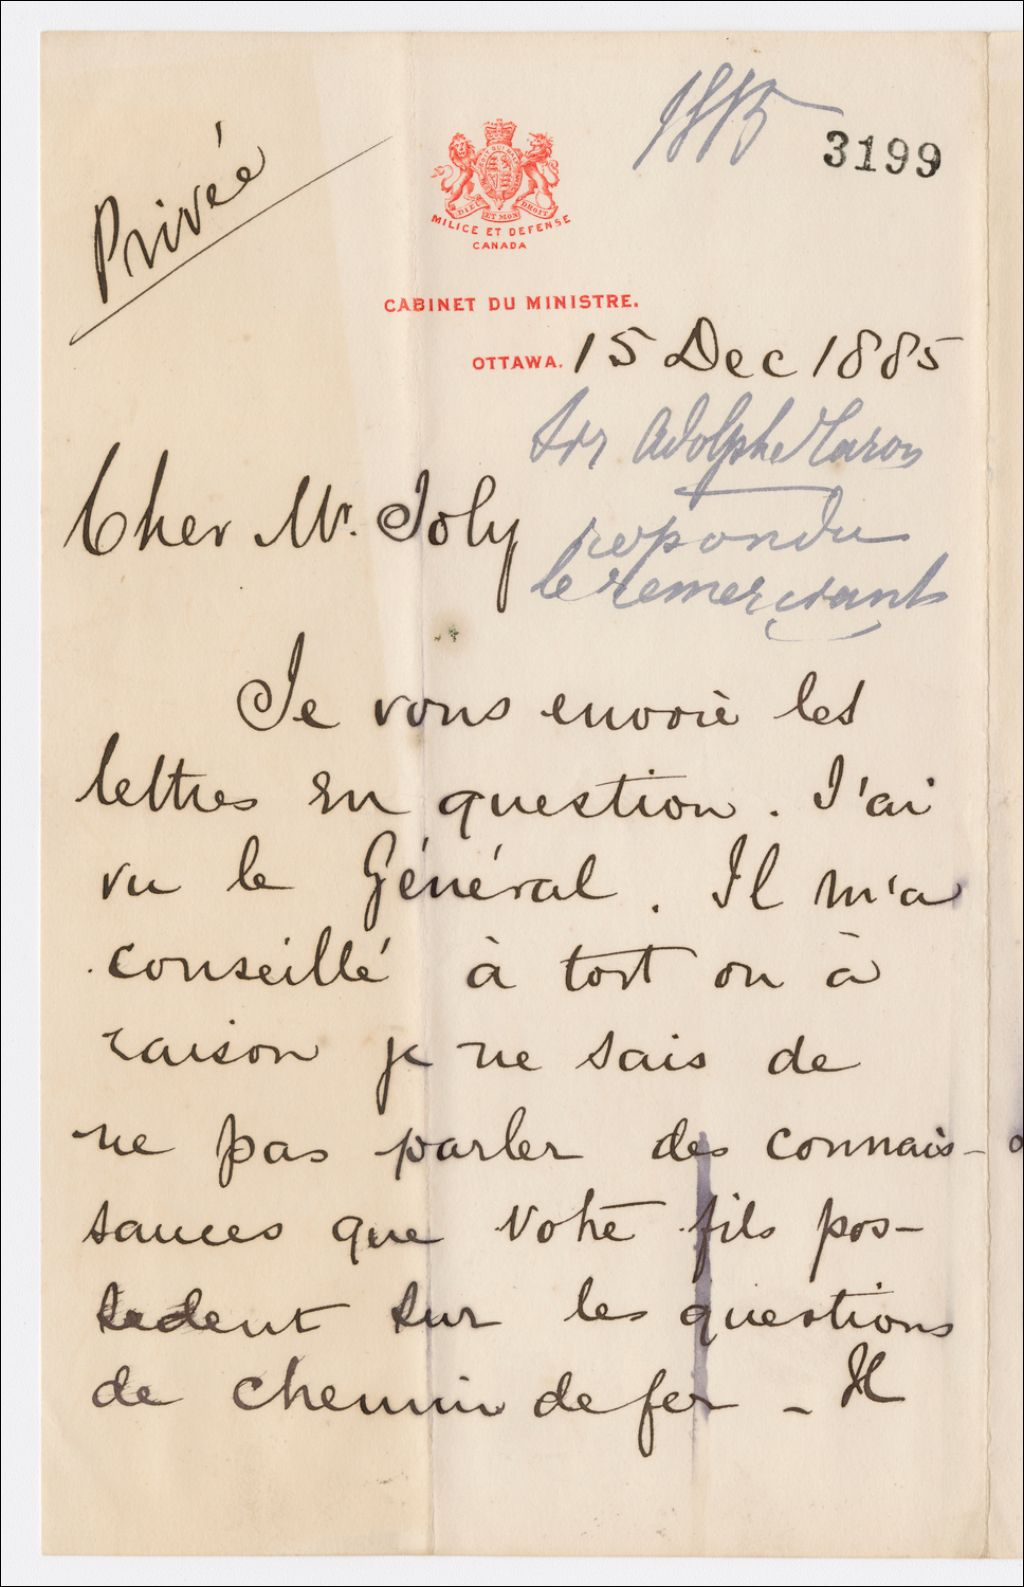 Privée
3199
DIEU ET MON DROIT
MILICE ET DEFENSE
CANADA
CABINET DU MINISTRE.
OTTAWA. 15 Dec 1885
Sir Adolphe Caron
repondu
le remerciant
Cher Mr. Joly
Je vous envoie les
lettres en question. J'ai
vu le Général. Il m'a
conseillé à tort ou à
raison je ne sais de
ne pas parler des connais-
sances que votre fils pos-
sedent sur les questions
de chemin de fer - Il